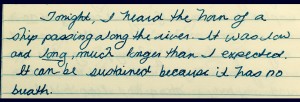 Tonight, I heard the horn of a
ship passing along the river. It was low
and long, much longer than I expected.
It can be sustained because it has no
breath.